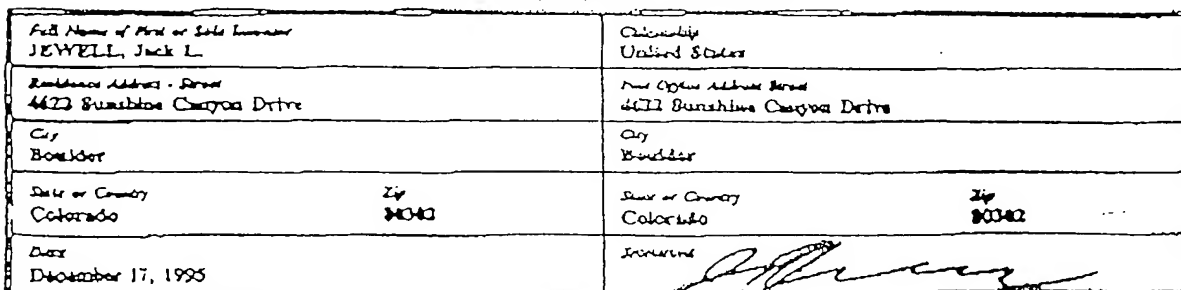 Full Name of First or Sole Inventor
JEWELL, Jack L.
Citizenship
United States
Residence Address - Street
Sunshine Canyon Drive
Post Office Address Street
Sunshine Canyon Drive
City
Boulder
City
Boulder
State or Country Zip
Colorado
State or Country Zip
Colorado
Date
December 17, 1995
Signature